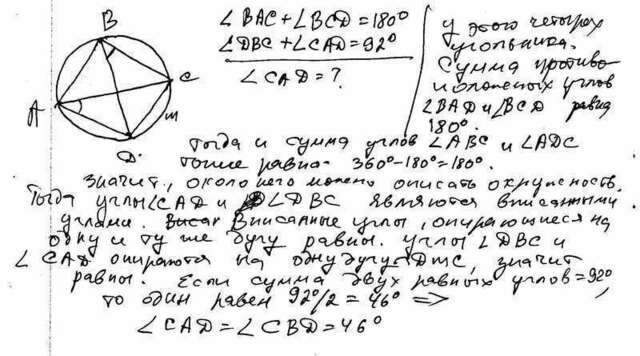 B
A
C
D
m
∠BAC+∠BCD=180°
∠DBC+∠CAD=92°
∠CAD=?
у этого четырех
угольника.
Сумма противо
положеных углов
∠BAD и ∠BCD равна
180°.
тогда и сумма углов ∠ABC и ∠ADC
тоже равна 360°-180°=180°.
Значит, около него можно описать окружность.
Тогда углы ∠CAD и ∠DBC являются вписанными
углами. Вписанные углы, опирающиеся на
одну и ту же дугу равны. углы ∠DBC и
∠CAD опираются на одну дугу DmC, значит
равны. Если сумма двух равных углов =92°,
то один равен 92°/2=46° =>
∠CAD=∠CBD=46°